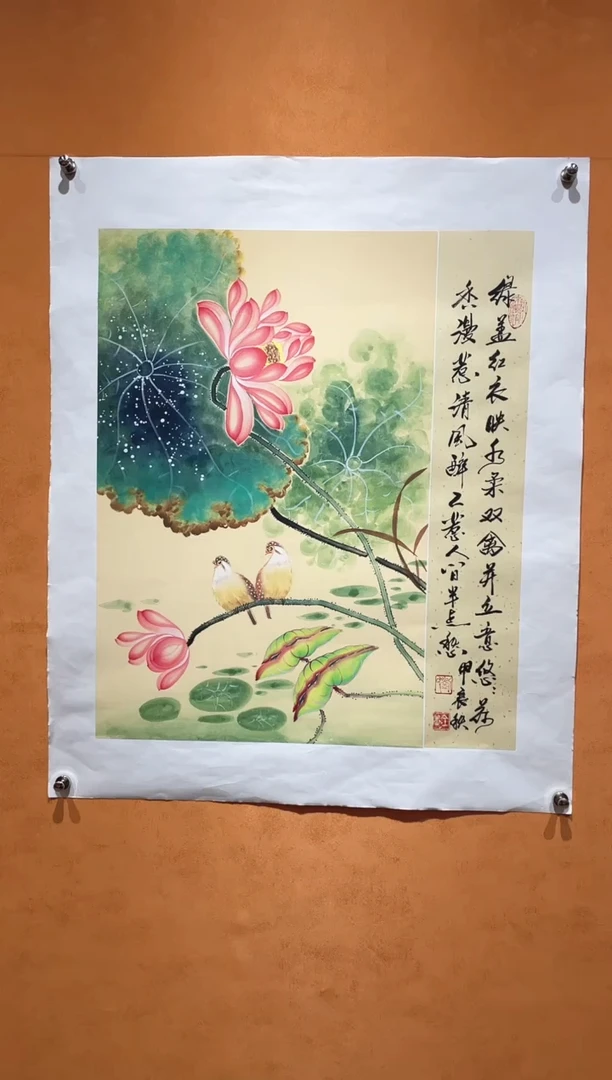 绿盖红衣映水柔双禽并立意悠〻荷
香漫惹清风醉不惹人间半点愁
甲辰秋